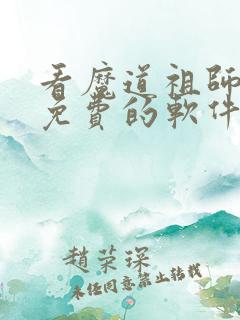 看魔道祖師
免費的軟件
趙荣琛
未经同意禁止转载